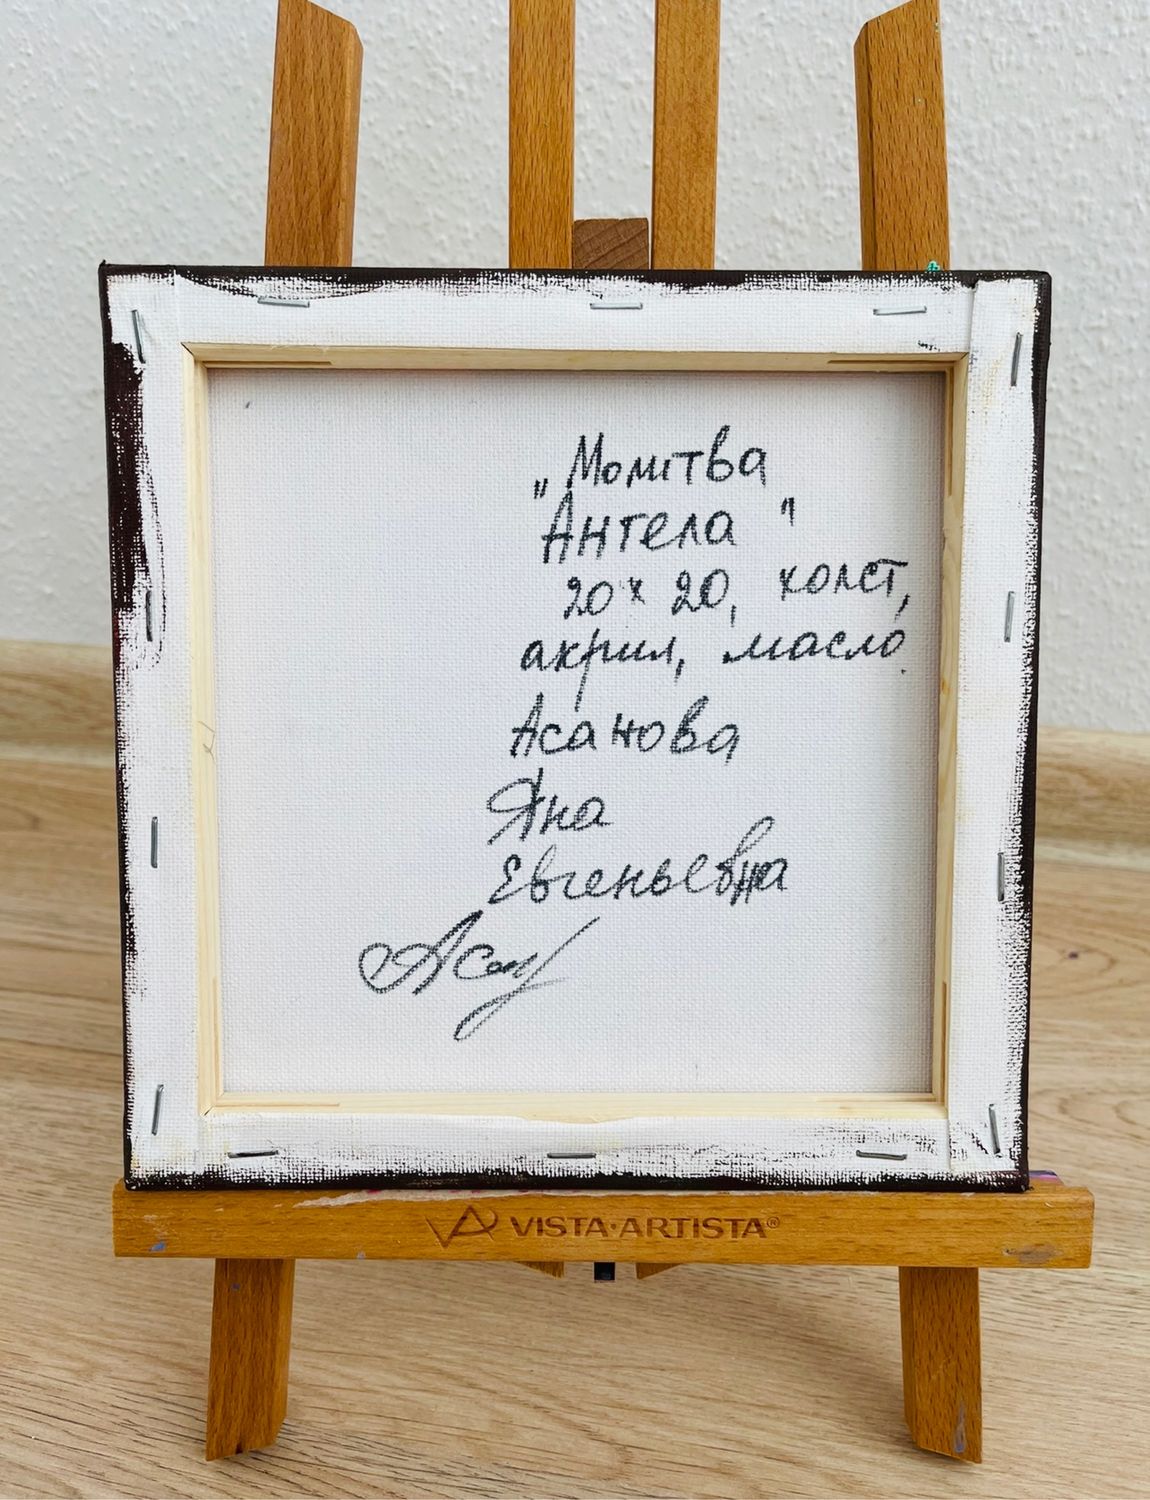 „Молитва
Ангела"
20 x 20, холст,
акрил, масло.
Асанова
Яна
Евгеньевна
VISTA·ARTISTA®